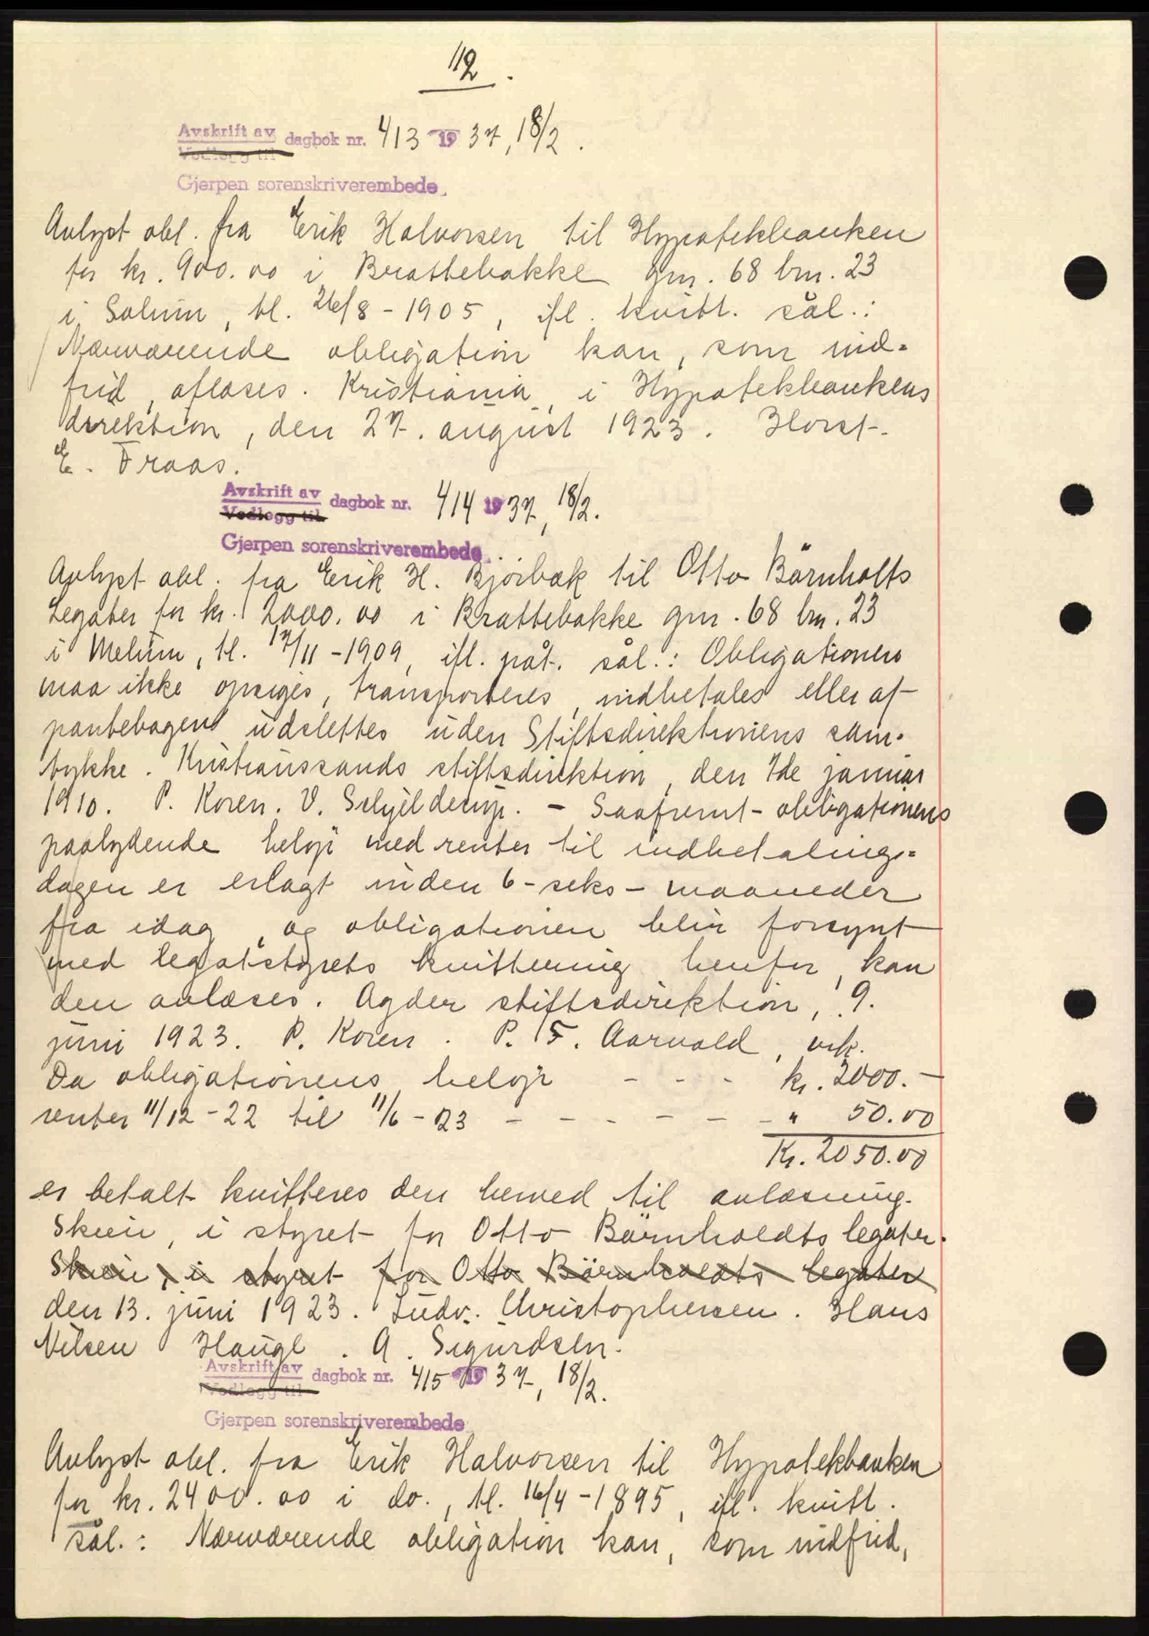 112.
Avskrift av dagbok nr. 413 1937, 18/2.
Vedlegg til
Gjerpen sorenskriverembede.
Avlyst obl. fra Erik Halvorsen til Hypotekbanken
for kr. 900.00 i Brattebakke gnr. 68 bnr. 23
i Solum, tl. 26/8 - 1905, ifl. kvitt. sål.:
Nærværende obligation kan, som ind-
frid, aflæses. Kristiania, i Hypotekbankens
direktion, den 27. august 1923. Horst.
E. Fraas.
Avskrift av dagbok nr. 414 1937, 18/2.
Vedlegg til
Gjerpen sorenskriverembede.
Avlyst obl. fra Erik H. Bjørbæk til Otto Bärnholts
Legater for kr. 2000.00 i Brattebakke gnr. 68 bnr. 23
i Melum, tl. 17/11 - 1909, ifl. påt. sål.: Obligationen
maa ikke opsiges, transporteres, indbetales eller af
pantebøgene udslettes uden Stiftsdirektionens sam-
tykke. Kristianssands stiftsdirektion, den 7de januar
1910. P. Koren. V. Schjelderup. - Saafremt obligationens
paalydende beløp med renter til indbetalings-
dagen er erlagt inden 6 - seks - maaneder
fra idag, og obligationen blir forsynt
med legatstyrets kvittering herfor, kan
den avlæses. Agder stiftsdirektion, 9.
juni 1923. P. Koren. P. F. Aarvold, vik.
Da obligationens beløp - - - kr. 2000.-
renter 11/12 - 22 til 11/6 - 23 - - - - - - " 50.00
Kr. 2050.00
er betalt kvitteres den herved til avlæsning.
Skien, i styret for Otto Bärnholdts legater.
Skien, i styret for Otto Bärnholdts legater
den 13. juni 1923. Ludv. Christophersen. Hans
Nilsen Haugl. A. Sigurdsen.
Avskrift av dagbok nr. 415 1937, 18/2.
Vedlegg til
Gjerpen sorenskriverembede
Avlyst obl. fra Erik Halvorsen til Hypotekbanken
for kr. 2400.00 i do., tl. 16/4 - 1895, ifl. kvitt.
sål.: Nærværende obligation kan, som indfrid,